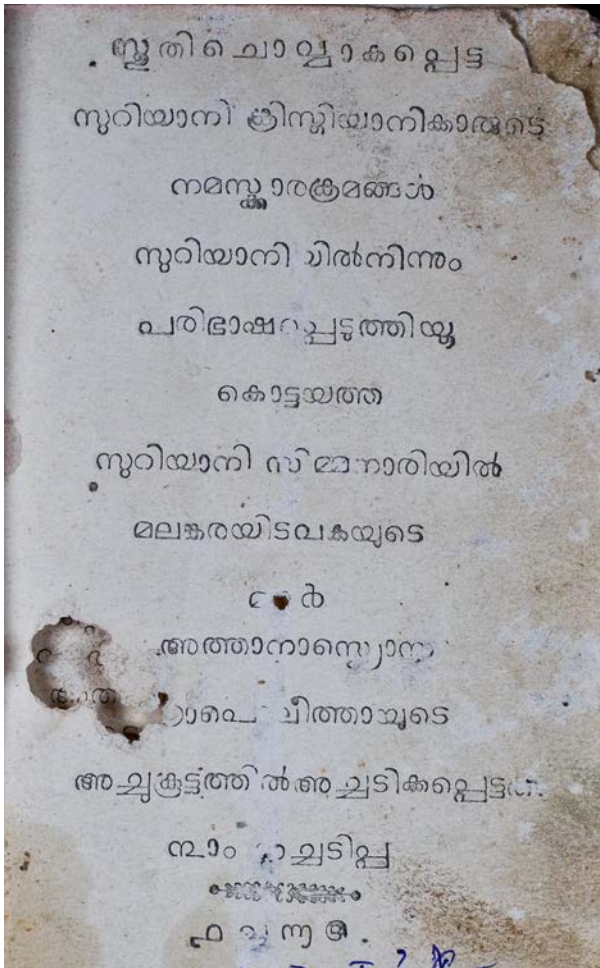 സ്തുതിചൊവ്വാകപ്പെട്ട
സുറിയാനി ക്രിസ്ത്യാനിക്കാരുടെ
നമസ്ക്കാരക്രമങ്ങൾ
സുറിയാനിയിൽനിന്നും
പരിഭാഷപ്പെടുത്തിയൂ
കൊട്ടയത്ത
സുറിയാനി സിമ്മനാരിയിൽ
മലങ്കരയിടവകയുടെ
അത്താനാസ്യൊസ
അച്ചുകൂട്ടത്തിൽഅച്ചടിക്കപ്പെട്ടത